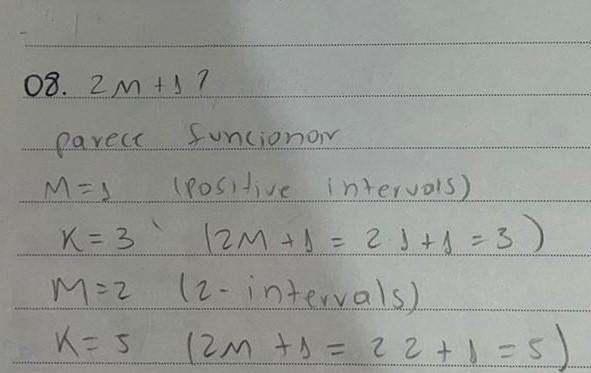 08. 2M+1?
parece funcionar
M=1 (positive intervals)
K=3 (2M+1 = 2 1+1 = 3)
M=2 (2-intervals)
K=5 (2M+1 = 2 2+1 = 5)